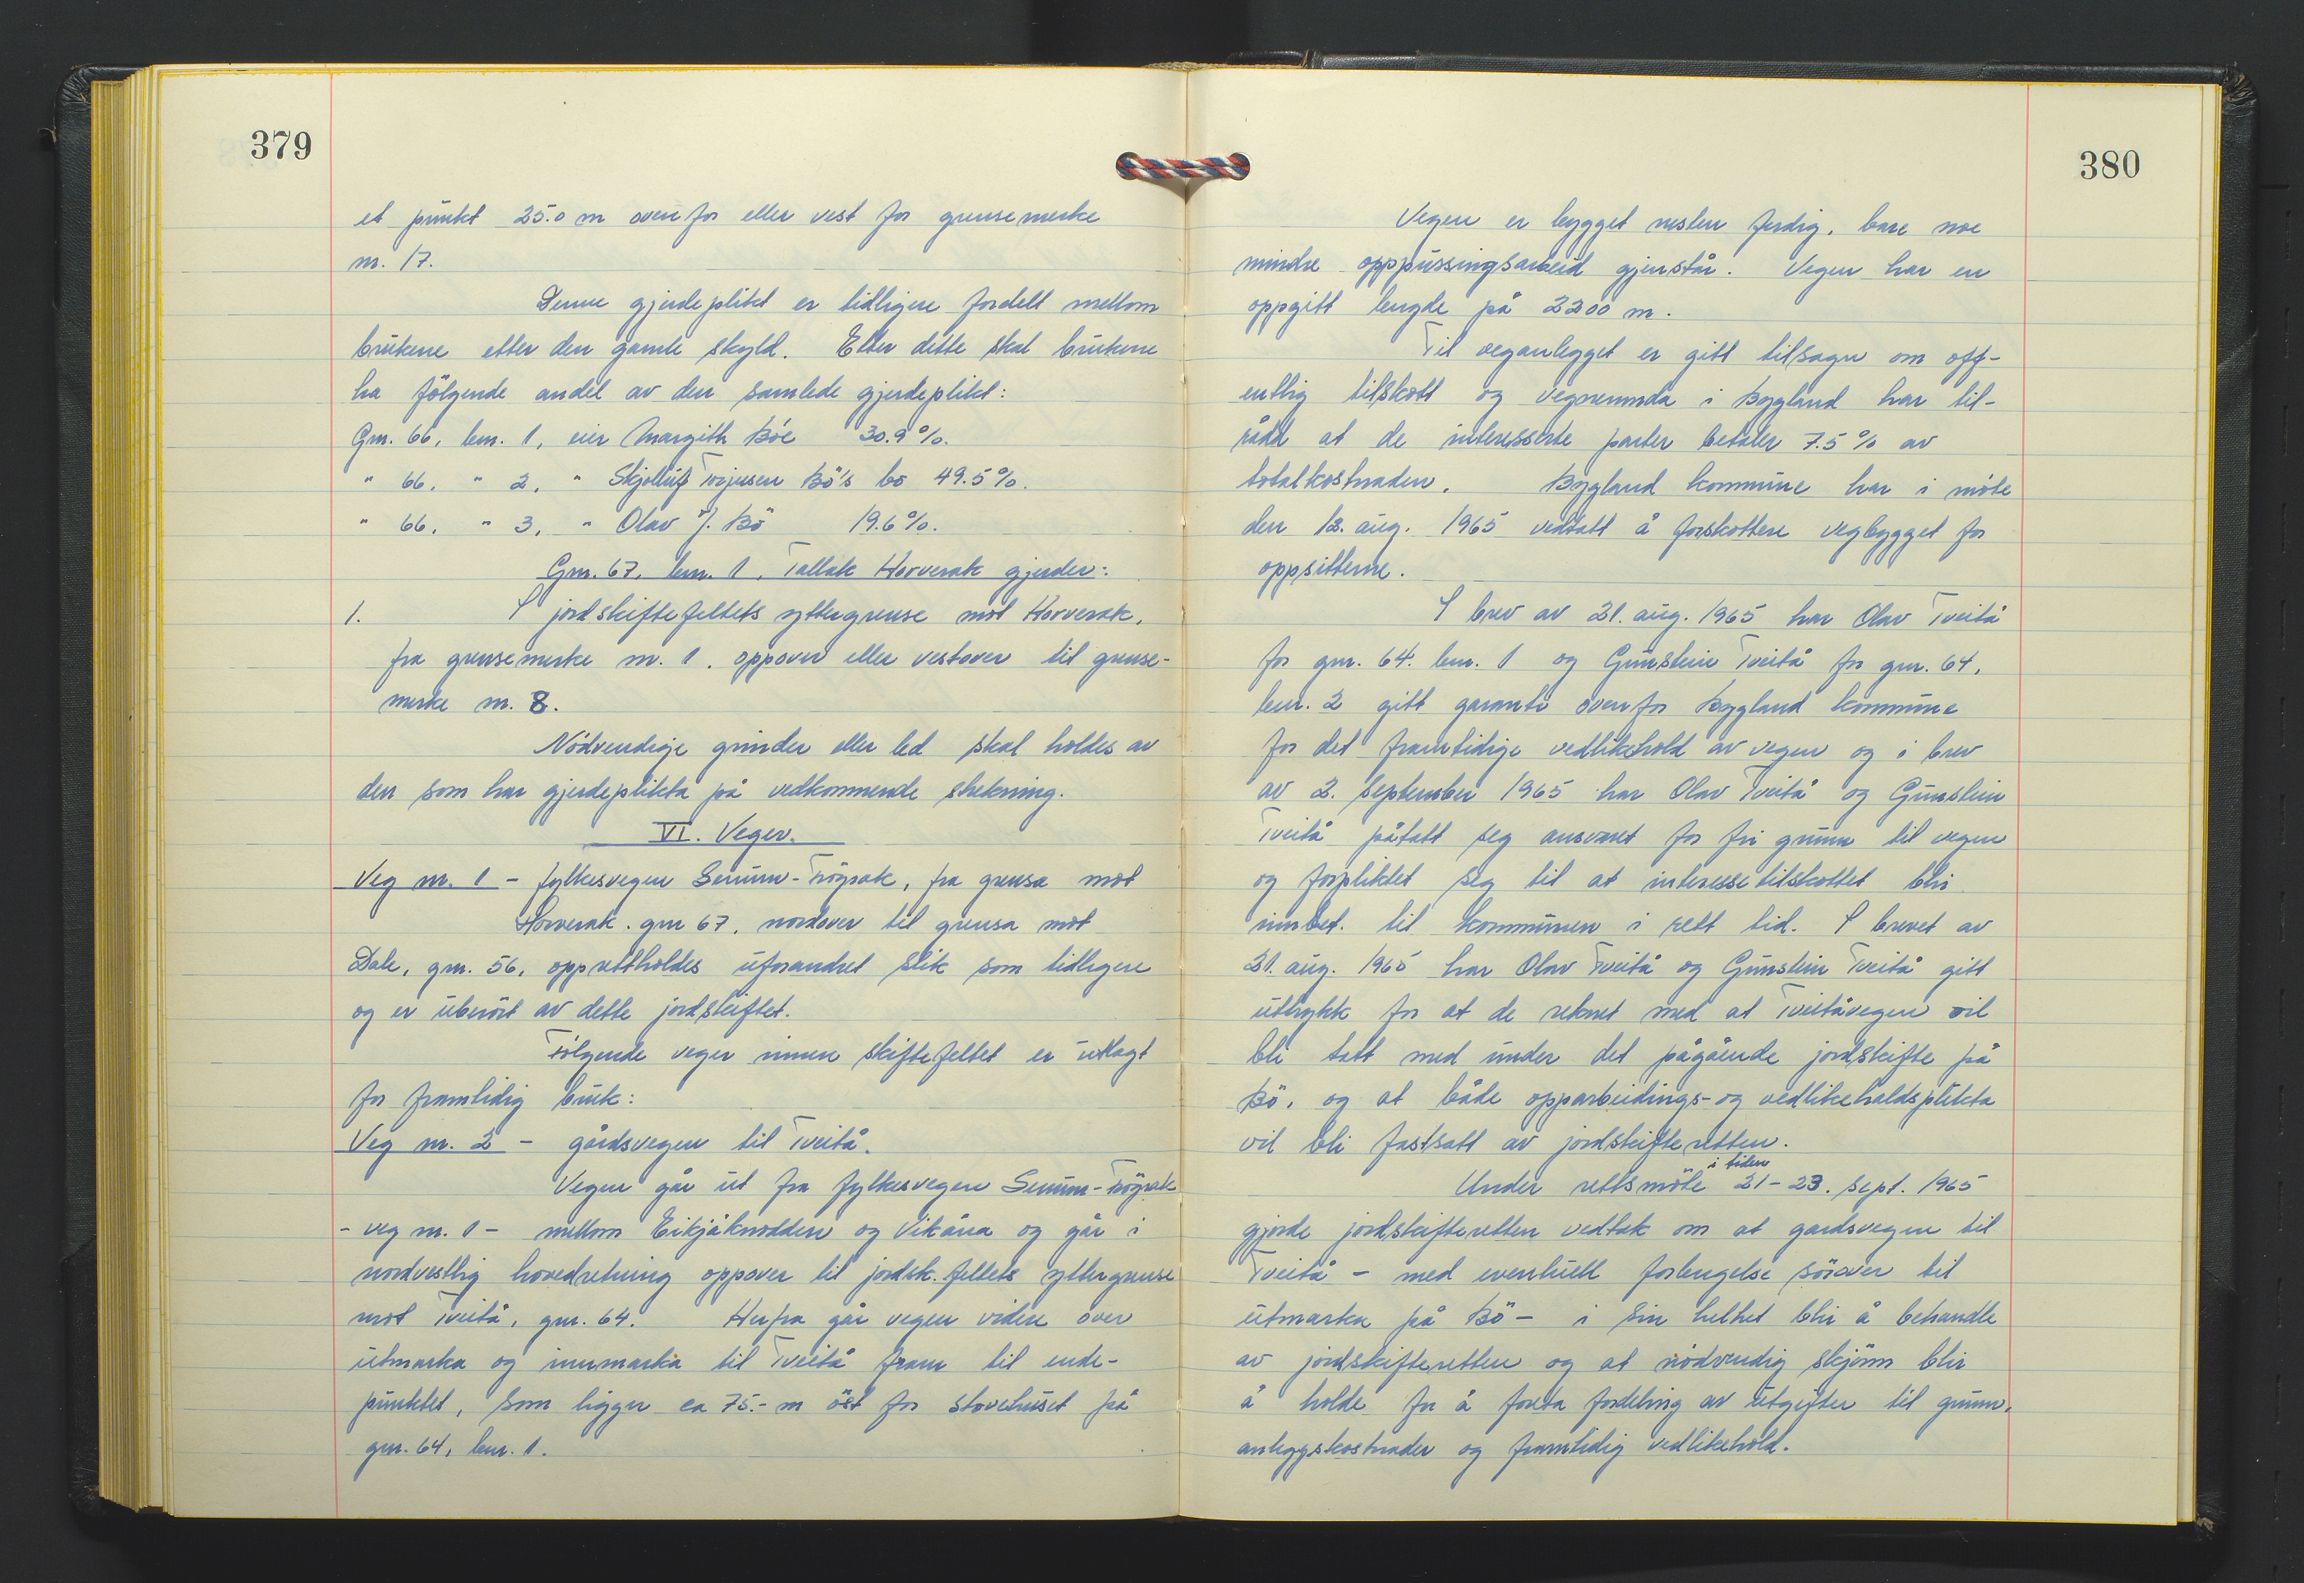 379
et punkt 25.0 m ovenfor eller vest for grensemerke
nr. 17.
Denne gjerdeplikt er tidligere fordelt mellom
brukene etter den gamle skyld. Etter dette skal brukene
ha følgende andel av den samlede gjerdeplikt:
Gnr. 66, bnr. 1, eier Margith Bøe 30.9 %.
" 66, " 2, " Skjøllug Torjusen Bø's bo 49.5 %.
" 66, " 3, " Olav J. Bø 19.6 %.
Gnr. 67, bnr. 1, Tallak Horverak gjerder:
1. I jordskiftefeltets yttergrense mot Horverak,
fra grensemerke nr. 1, oppover eller vestover til grense-
merke nr. 8.
Nødvendige grinder eller led skal holdes av
den som har gjerdeplikta på vedkommende strekning.
VI. Veger.
Veg nr. 1 - fylkesvegen Senum-Frøysak, fra grensa mot
Horverak, gnr 67, nordover til grensa mot
Dale, gnr. 56, opprettholdes uforandret slik som tidligere
og er uberørt av dette jordskiftet.
Følgende veger innen skiftefeltet er utlagt
for framtidig bruk:
Veg nr. 2 - gårdsvegen til Tveitå.
Vegen går ut fra fylkesvegen Senum-Frøysak
- veg nr. 1 - mellom Eikjåknodden og Vikåna og går i
nordvestlig hovedretning oppover til jordsk.feltets yttergrense
mot Tveitå, gnr. 64. Herfra går vegen videre over
utmarka og innmarka til Tveitå fram til ende-
punktet, som ligger ca 75.- m øst for stovehuset på
gnr. 64, bnr. 1.
380
Vegen er bygget nesten ferdig, bare noe
mindre oppussingsarbeid gjenstår. Vegen har en
oppgitt lengde på 2200 m.
Til veganlegget er gitt tilsagn om off-
entlig tilskott og vegnemnda i Bygland har til-
rådd at de interesserte parter betaler 7.5 % av
totalkostnaden. Bygland kommune har i møte
den 12. aug. 1965 vedtatt å forskottere vegbygget for
oppsitterne.
I brev av 21. aug. 1965 har Olav Tveitå
for gnr. 64. bnr. 1 og Gunstein Tveitå for gnr. 64,
bnr. 2 gitt garanti ovenfor Bygland kommune
for det framtidige vedlikehold av vegen og i brev
av 2. september 1965 har Olav Tveitå og Gunstein
Tveitå påtatt seg ansvaret for fri grunn til vegen
og forpliktet seg til at interessetilskottet blir
innbet. til kommunen i rett tid. I brevet av
21. aug. 1965 har Olav Tveitå og Gunstein Tveitå gitt
uttrykk for at de reknet med at Tveitåvegen vil
bli tatt med under det pågående jordskifte på
Bø, og at både opparbeidings- og vedlikeholdsplikta
vil bli fastsatt av jordskifteretten.
Under rettsmøte i tiden 21-23. sept. 1965
gjorde jordskifteretten vedtak om at gardsvegen til
Tveitå - med eventuell forlengelse sørover til
utmarka på Bø - i sin helhet blir å behandle
av jordskifteretten og at nødvendig skjønn blir
å holde for å foreta fordeling av utgifter til grunn,
anleggskostnader og framtidig vedlikehold.